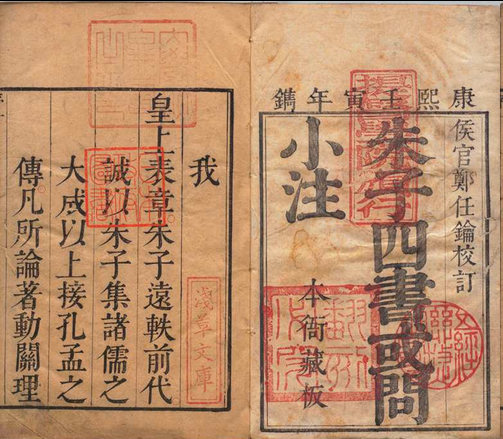 康熙壬寅年鐫
侯官鄭任鑰校訂
朱子四書或問
小注
本衙藏板
我
皇上表章朱子遠軼前代
誠以朱子集諸儒之
大成以上接孔孟之
傳凡所論著動關理
淺草文庫